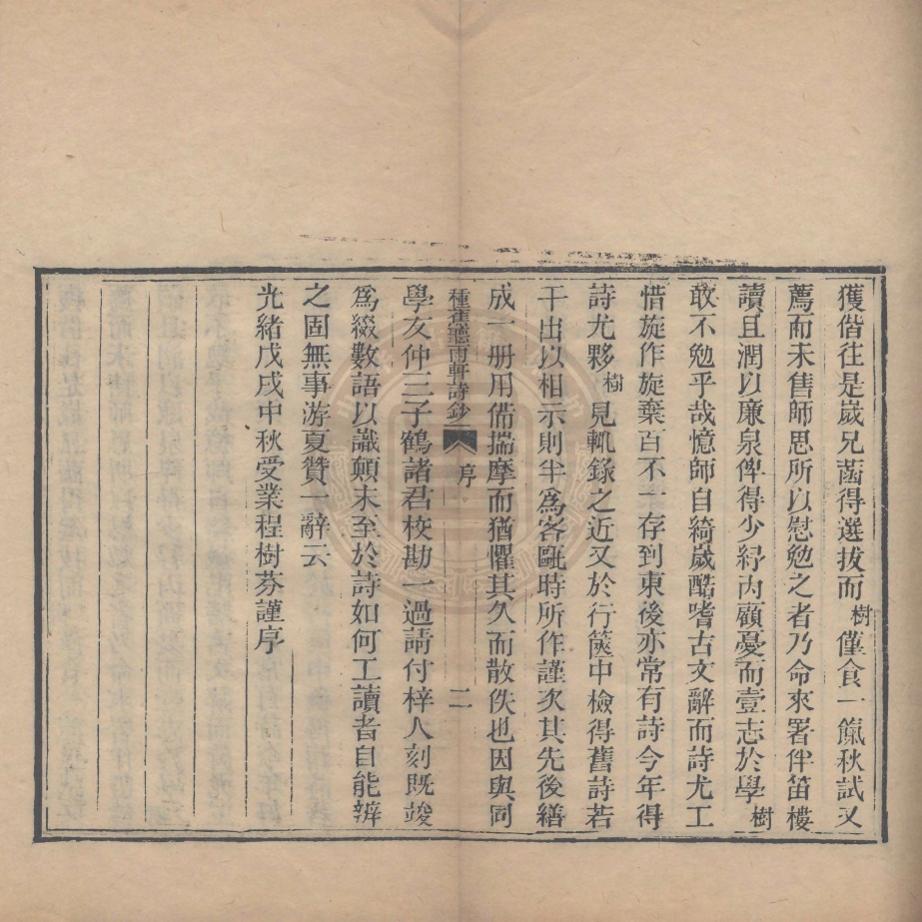 獲偕往是歲兄菡得選拔而樹僅食一餼秋試又
薦而未售師思所以慰勉之者乃命來署伴笛樓
讀且潤以廉泉俾得少紓內顧憂而壹志於學樹
敢不勉乎哉憶師自綺歲酷嗜古文辭而詩尤工
惜旋作旋棄百不一存到東後亦常有詩今年得
詩尤夥樹見輒錄之近又於行篋中檢得舊詩若
干出以相示則半爲客甌時所作謹次其先後繕
成一册用備揣摩而猶懼其久而散佚也因與同
種蕉聽雨軒詩鈔 序 二
學友仲三子鶴諸君校勘一過請付梓人刻旣竣
爲綴數語以識顛末至於詩如何工讀者自能辨
之固無事游夏贊一辭云
光緒戊戌中秋受業程樹芬謹序